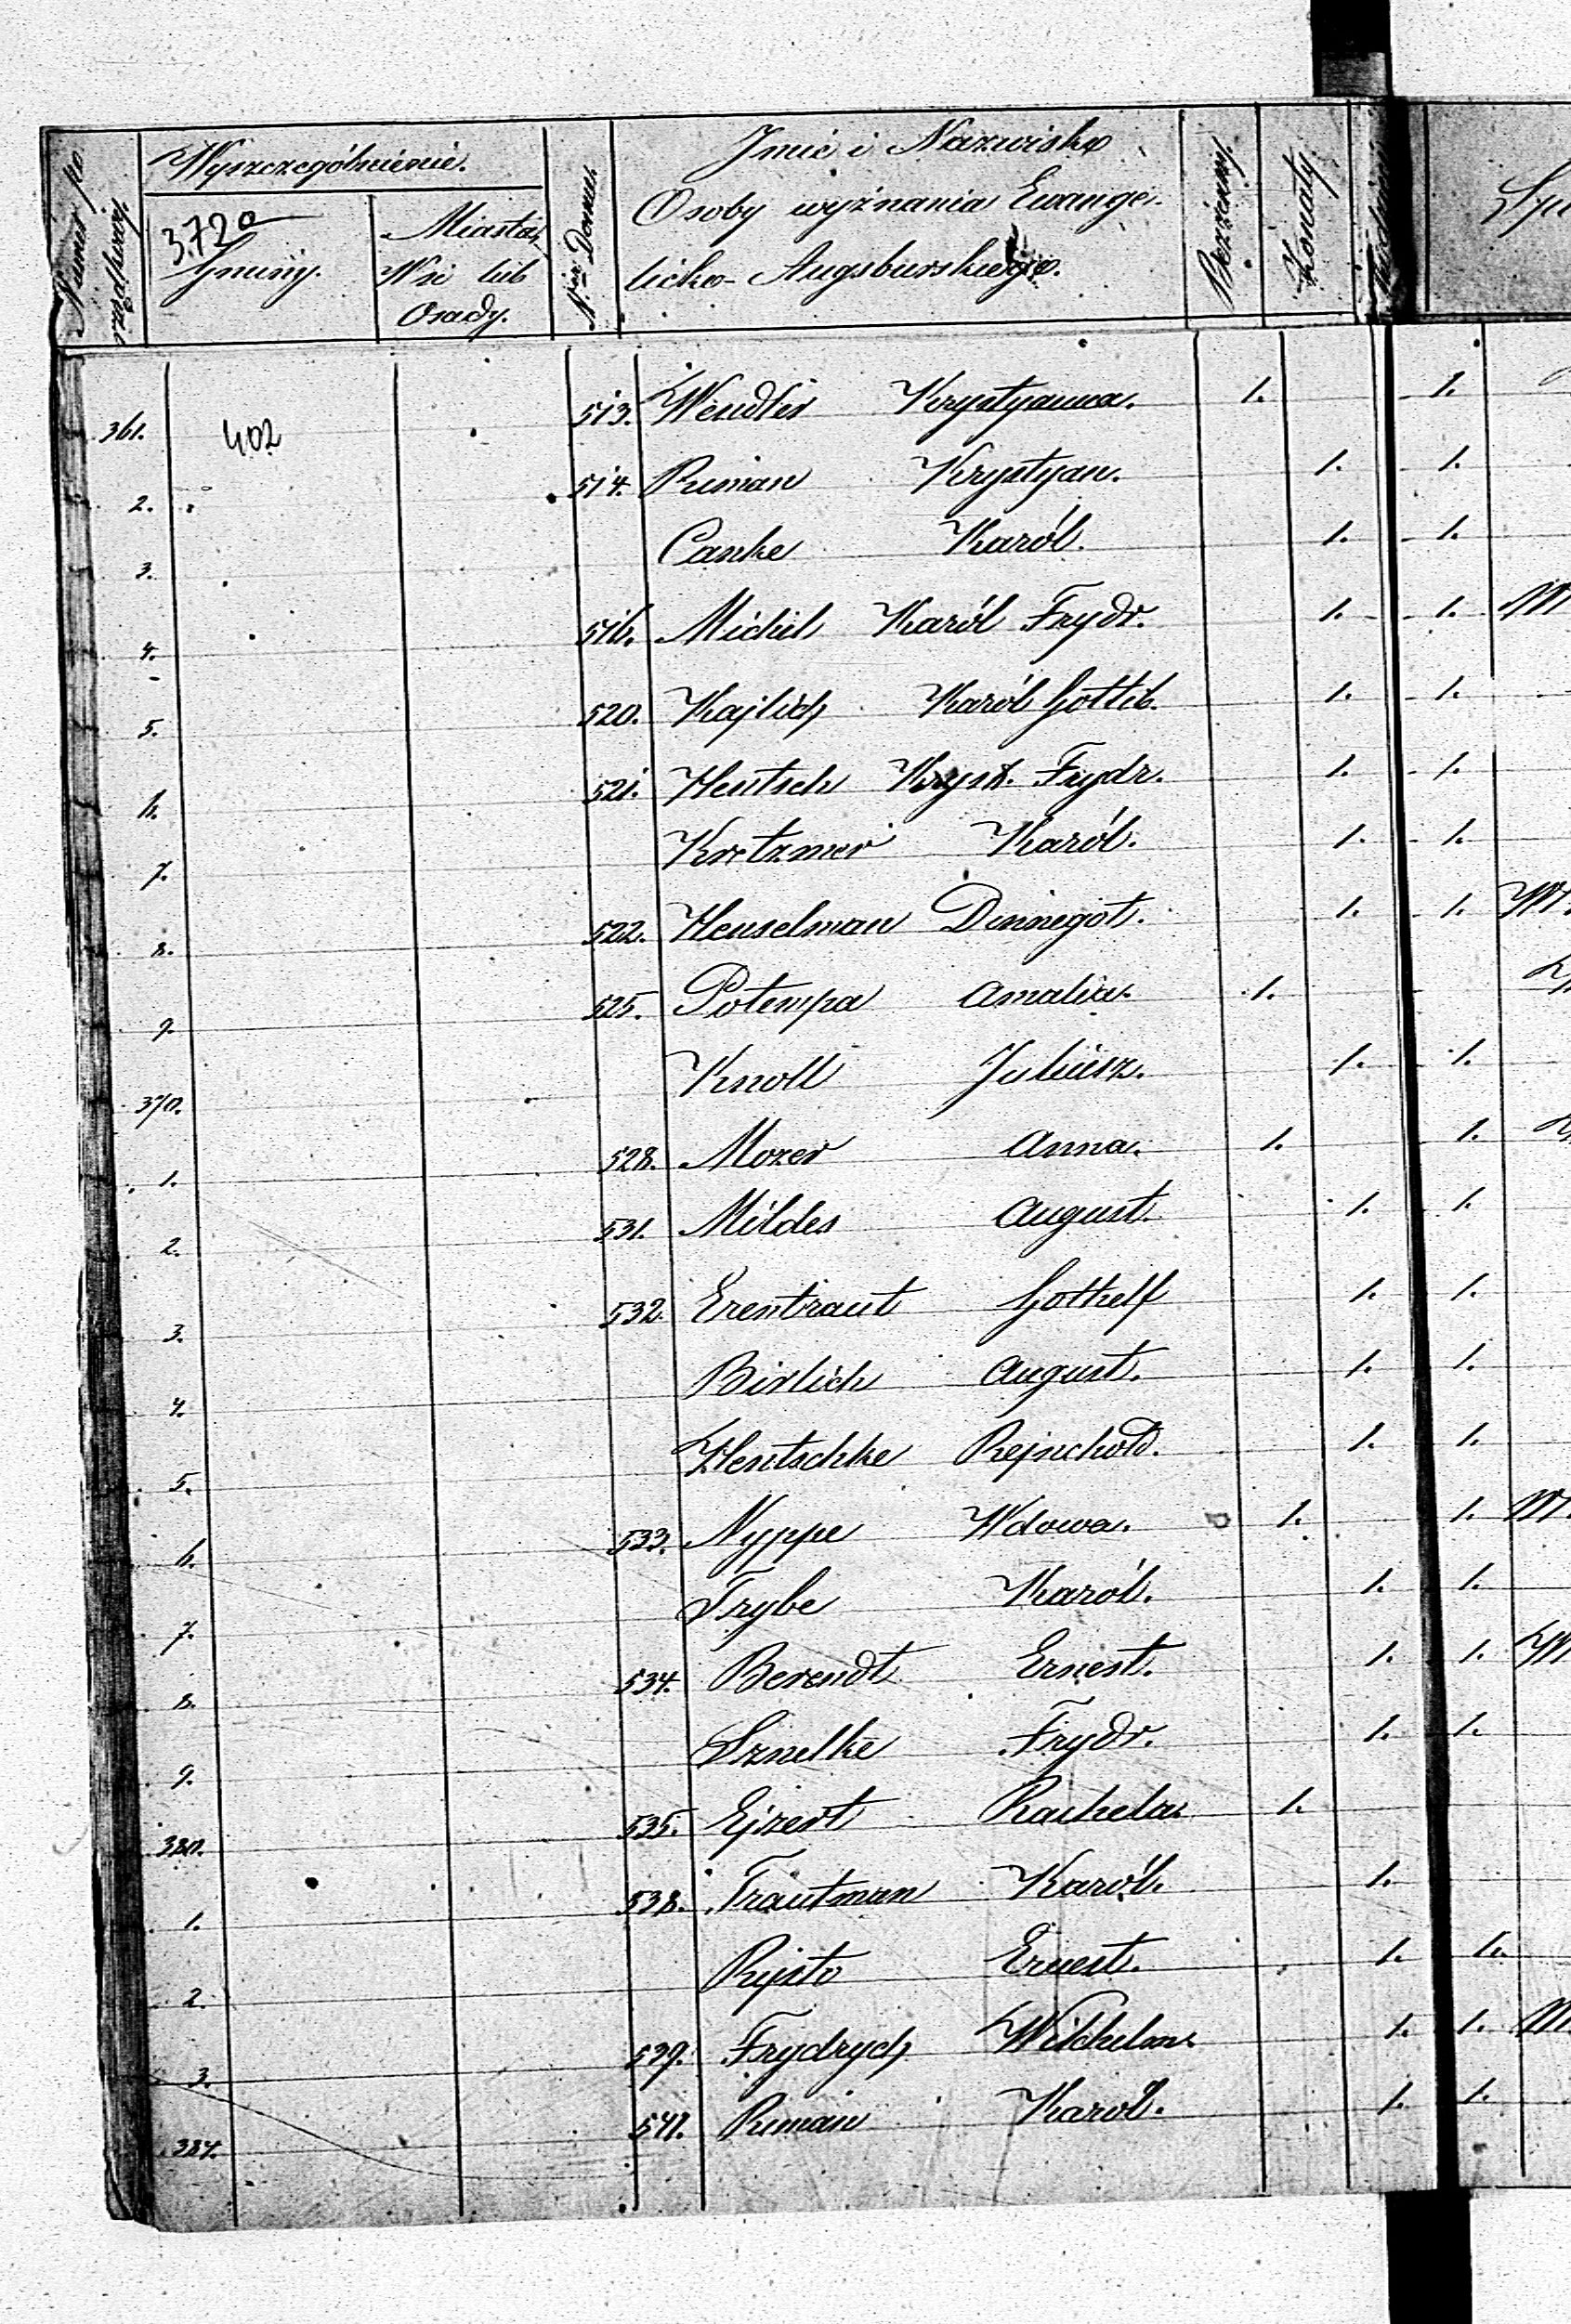 Numer po
rządkowy
Wyszczególnienie.
3720
Gminy.
Miasta,
Wsi lub
Osady.
Nr Domu.
Imie i Nazwisko
Osoby wyznania Ewange-
licko-Augsburskiego.
Bezżenny.
Żonaty.
361. 402 513. Wendler Krystyanna. 1. 1.
2. 514. Riman Krystyan. 1. 1.
3. Canke Karól. 1. 1.
4. 516. Michil Karól Frydr. 1. 1.
5. 520. Kajlich Karól Gottlib. 1. 1.
6. 521. Hentsch Kryst. Frydr. 1. 1.
7. Kretzmer Karól. 1. 1.
8. 522. Henselman Dinnegot. 1. 1.
9. 525. Potempa Amalia. 1.
370. Knoll Juliusz. 1. 1.
1. 528. Mozer Anna. 1. 1.
2. 531. Mildes August. 1. 1.
3. 532. Erentraut Gothelf 1. 1.
4. Birlich August. 1. 1.
5. Hentschke Rejnchold. 1. 1.
6. 533. Nyppe Wdowa. 1. 1.
7. Frybe Karól. 1. 1.
8. 534. Berendt Ernest. 1. 1.
9. Sznelke Frydr. 1. 1.
380. 535. Ejzert Rachela. 1.
1. 538. Trautman Karól. 1.
2. Ernest. 1. 1.
3. 539. Frydrych Wilchelm. 1. 1.
384. 541. Riman Karol. 1. 1.